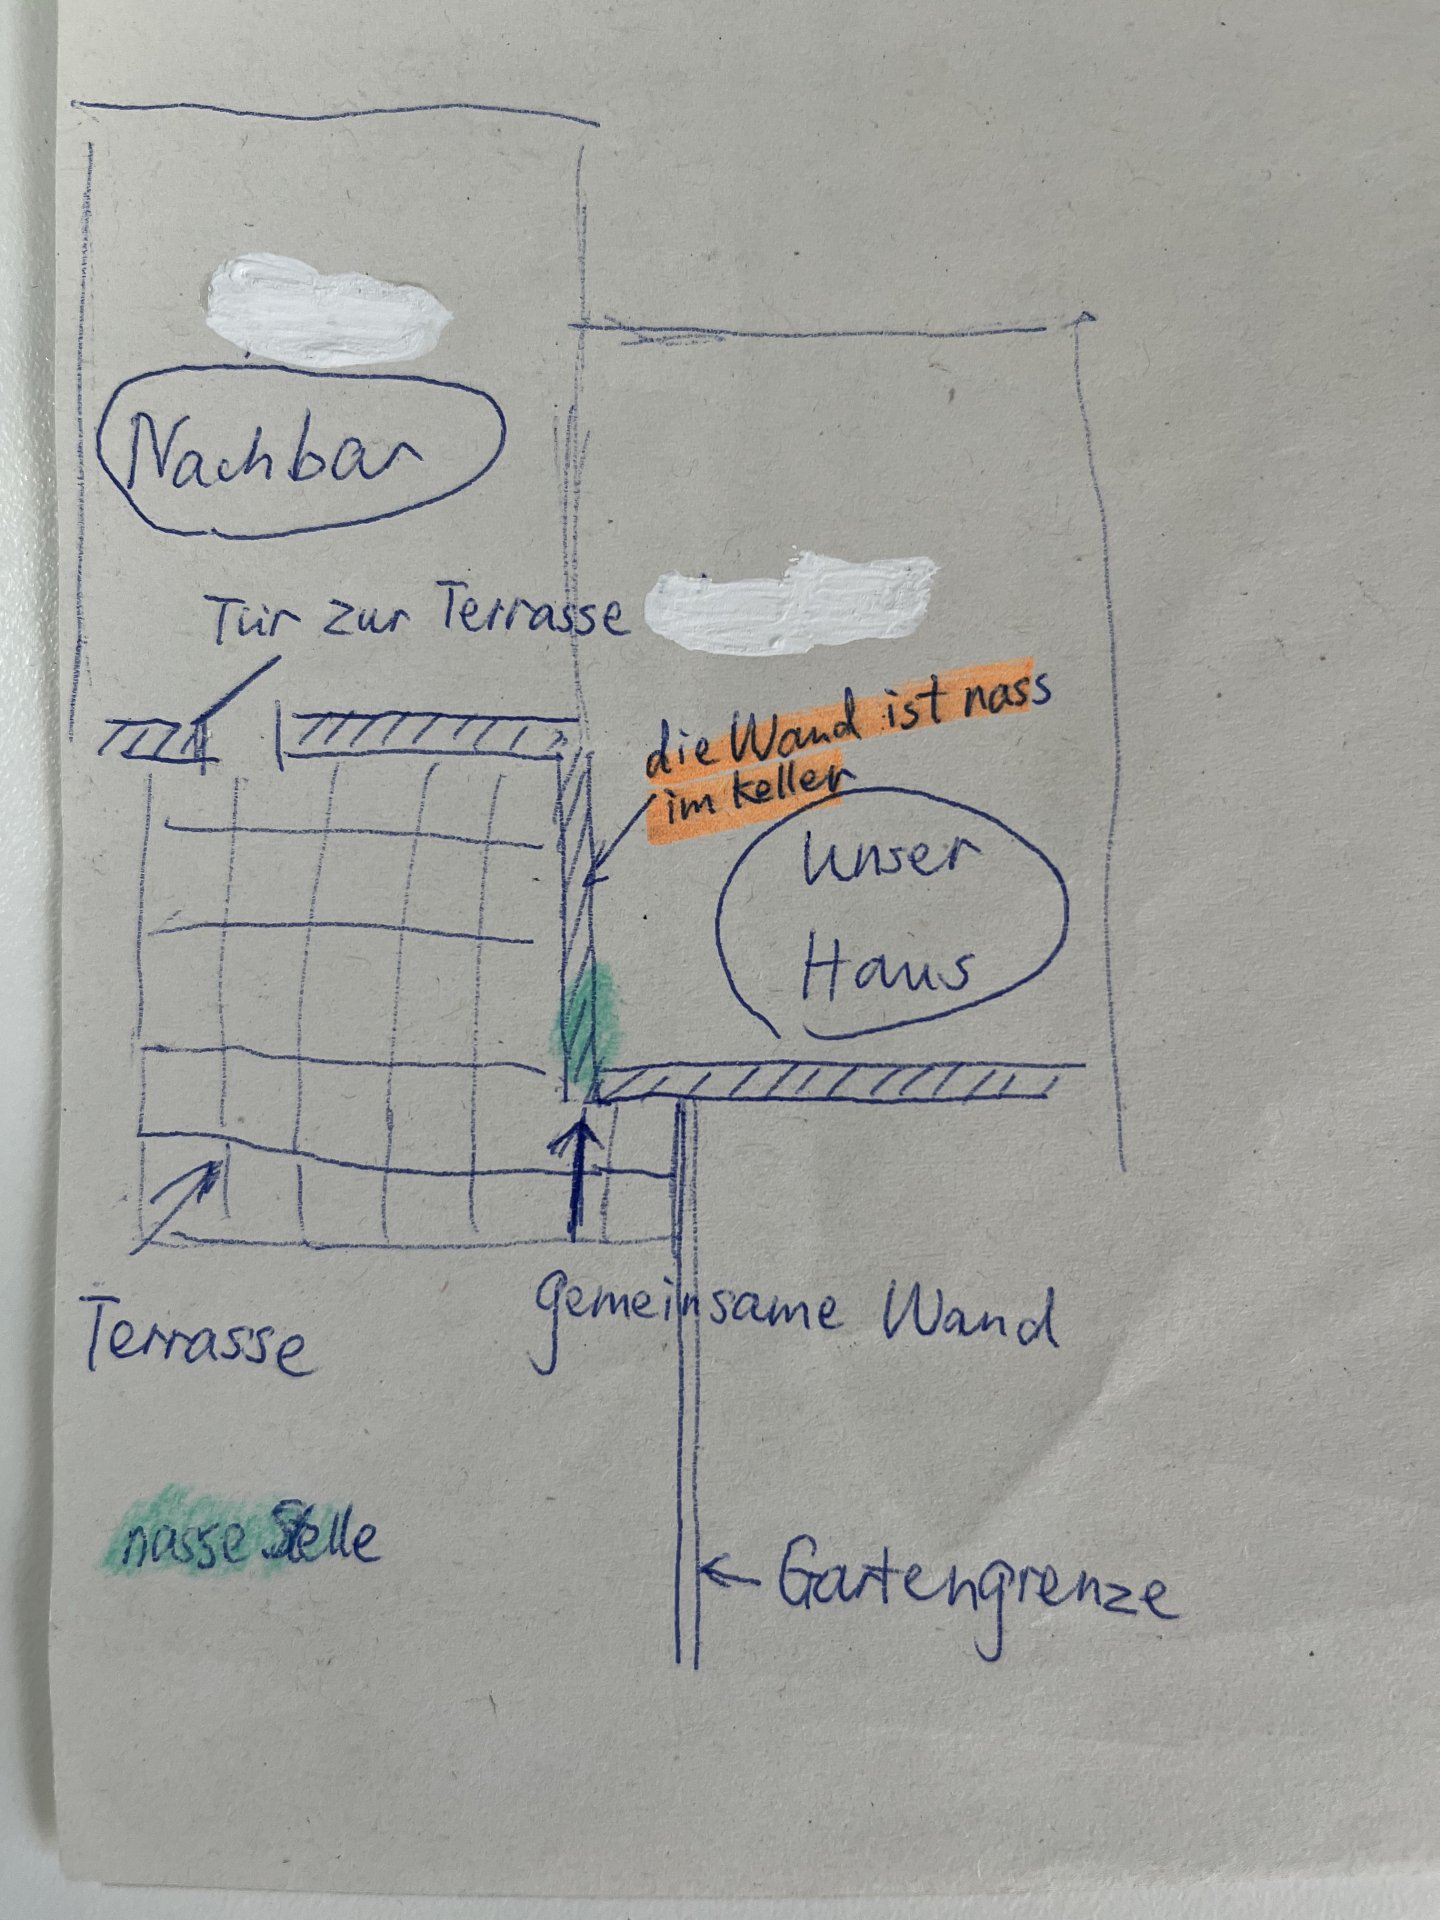 Nachbar
Tür zur Terrasse
die Wand ist nass
im Keller
Unser
Haus
gemeinsame Wand
Terrasse
nasse Stelle
Gartengrenze